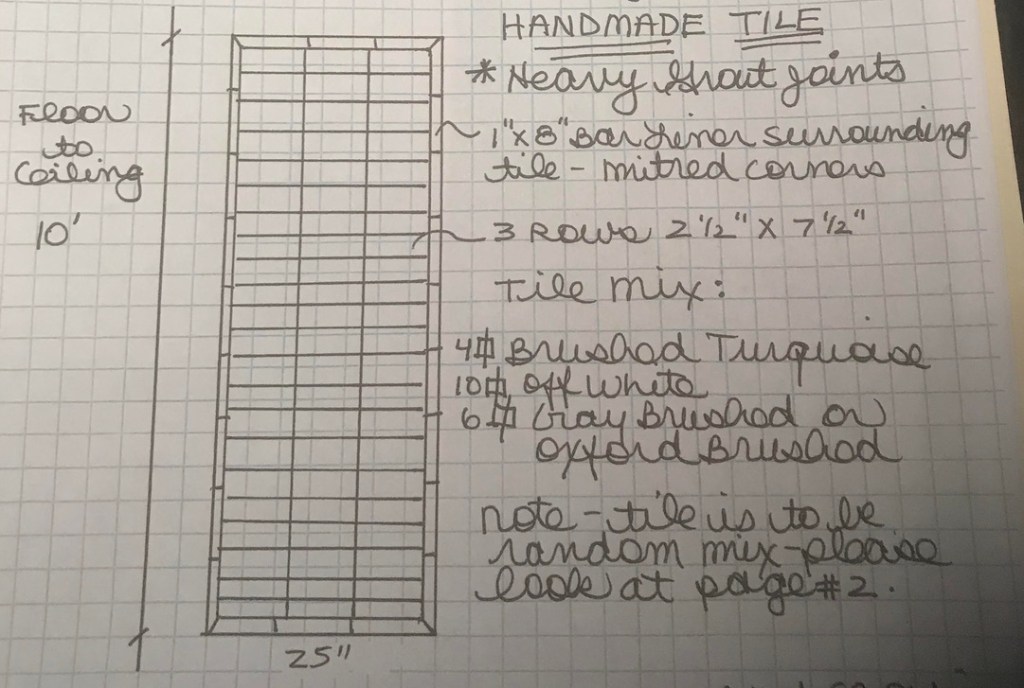 HANDMADE TILE
* Heavy grout joints
Floor
to
Ceiling
10'
1" x 8" Bar Liner surrounding
tile - mitred corners
3 Rows 2 1/2" x 7 1/2"
Tile mix:
4⏍ Brushed Turquoise
10⏍ off white
6⏍ Gray Brushed or
oxford Brushed
note - tile is to be
random mix - please
look at page #2.
25"